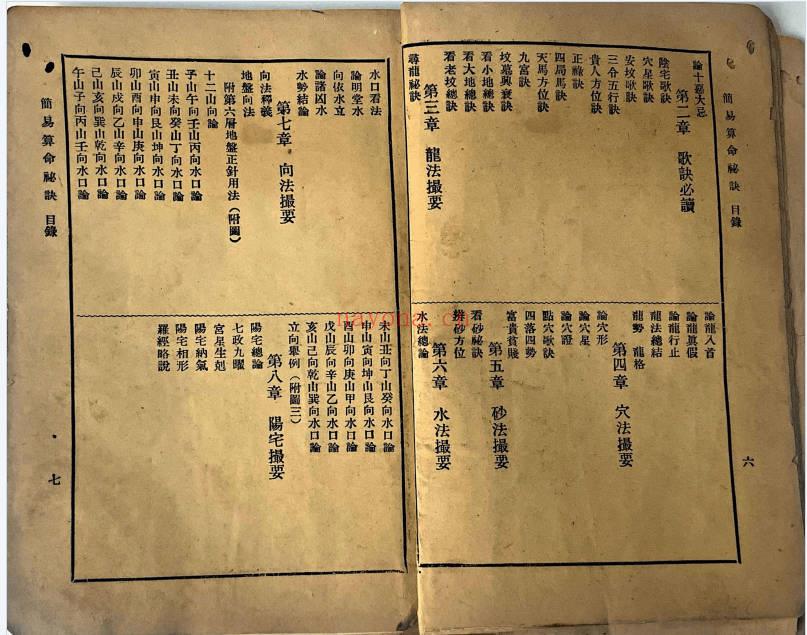 簡易算命祕訣 目錄
六
論十嘉大忌
第二章 歌訣必讀
陰宅歌訣
穴星歌訣
安坟歌訣
三合五行訣
貴人方位訣
正祿訣
四局馬訣
天馬方位訣
九宮訣
坟墓興衰訣
看小地總訣
看大地總訣
看老坟總訣
第三章 龍法撮要
尋龍祕訣
論龍入首
論龍真假
論龍行止
龍法總結
龍勢 龍格
第四章 穴法撮要
論穴形
論穴星
論穴證
點穴歌訣
四落四勢
富貴貧賤
第五章 砂法撮要
看砂祕訣
辨砂方位
第六章 水法撮要
水法總論
水口看法
論明堂水
向依水立
論諸凶水
水勢結論
第七章 向法撮要
向法釋義
地盤向法
附第六層地盤正針用法(附圖)
十二山向論
子山午向壬山丙向水口論
丑山未向癸山丁向水口論
寅山申向艮山坤向水口論
卯山酉向甲山庚向水口論
辰山戌向乙山辛向水口論
己山亥向巽山乾向水口論
午山子向丙山壬向水口論
未山丑向丁山癸向水口論
申山寅向坤山艮向水口論
酉山卯向庚山甲向水口論
戌山辰向辛山乙向水口論
亥山己向乾山巽向水口論
立向舉例(附圖三)
第八章 陽宅撮要
陽宅總論
七政九曜
宮星生剋
陽宅納氣
陽宅相形
羅經略說
簡易算命祕訣 目錄
七
nayona.cn